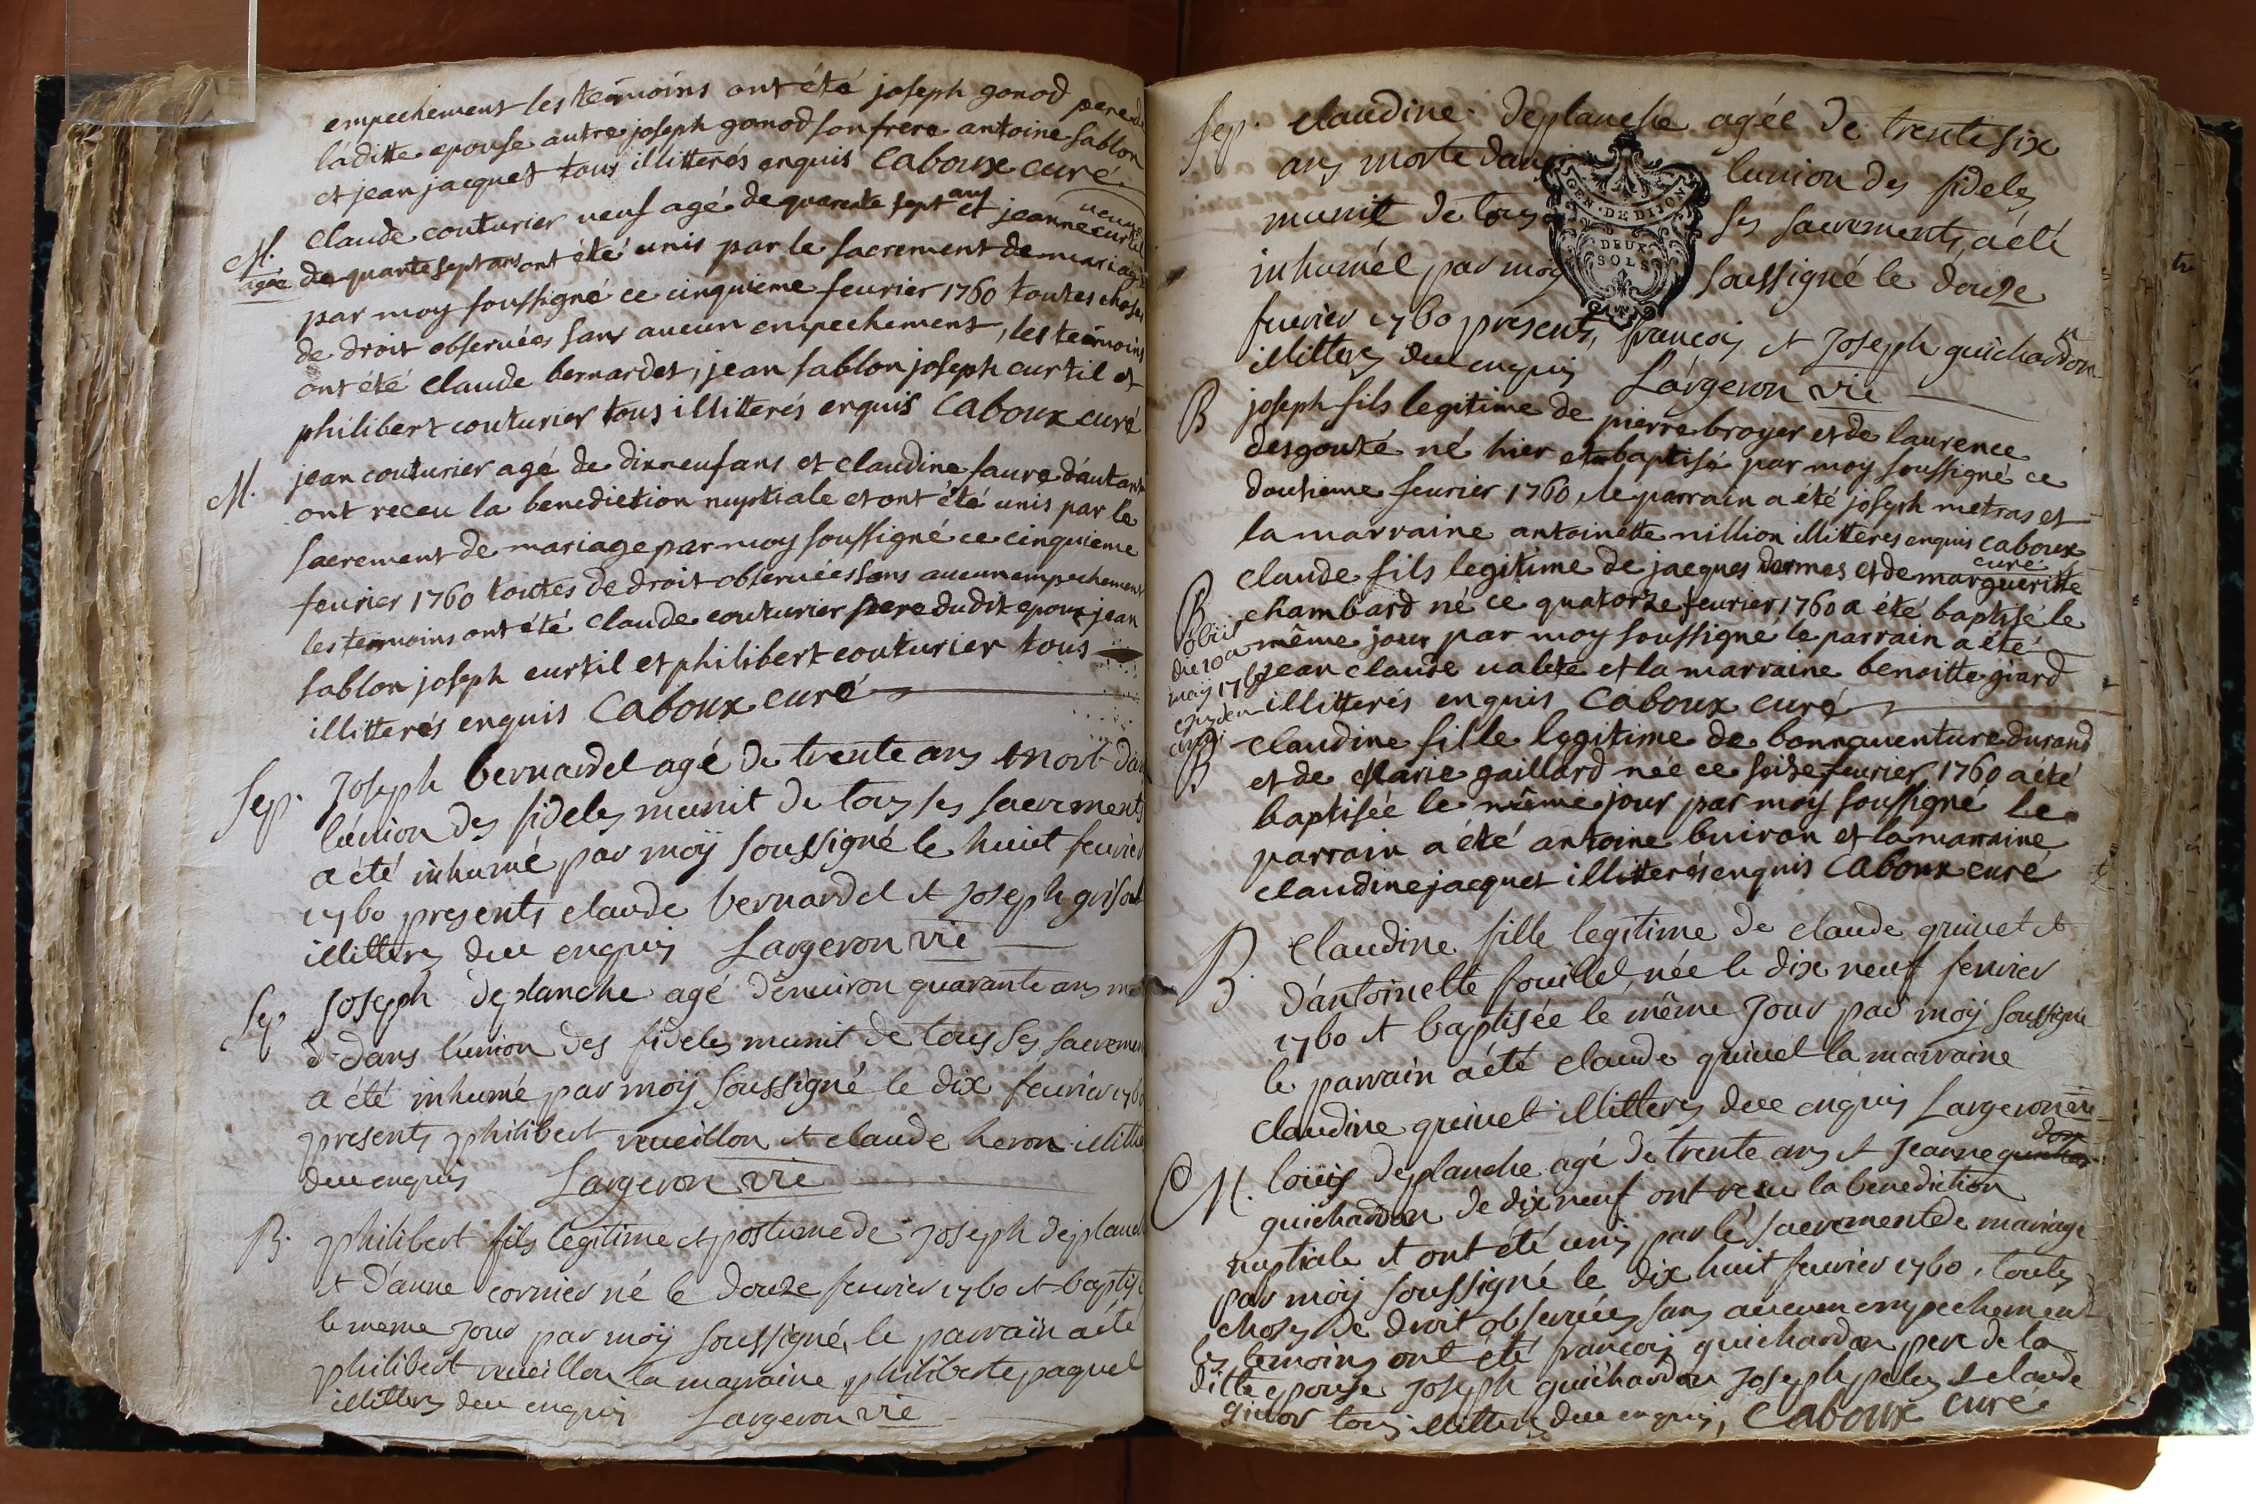 empechement les temoins ont été joseph gonod pere de
laditte epouse autre joseph gonod son frere antoine sablon
et jean jacquet tous illitterés enquis Caboux curé
M. claude couturier veuf agé de quarente sept ans et jeanne curtil veuve
agée de quarante sept ans ont été unis par le sacrement de mariage
par moy soussigné ce cinquieme feurier 1760 toutes choses
de droit obseruées sans aucun empechement, les temoins
ont été claude bernardet, jean sablon joseph curtil et
philibert couturier tous illitterés enquis Caboux curé
M. jean couturier agé de dixneuf ans et claudine faure d'autant
ont receu la benediction nuptiale et ont été unis par le
sacrement de mariage par moy soussigné ce cinquieme
feurier 1760 toutes de droit obseruées sans aucun empechement
les temoins ont été claude couturier pere dudit epoux jean
sablon joseph curtil et philibert couturier tous
illitterés enquis Caboux curé
Sep. Joseph bernardet agé de trente ans mort dans
l'union des fideles munit de tous ses sacrements
a été inhumé par moÿ soussigné le huict feurier
1760 presents claude bernardet et Joseph grisot
illitterés due enquis Largeron vie
Sep. Joseph deplanche agé d'enuiron quarante ans
dans l'union des fideles munit de tous ses sacrements
a été inhumé par moÿ soussigné le dix feurier 1760
presents philibert reueillon et claude heron illitterés
due enquis Largeron vie
B. philibert fils legitime et postume de Joseph deplanche
et d'anne cornier né le douze feurier 1760 et baptisé
le meme jour par moÿ soussigné, le parrain a été
philibert reueillon la marraine philiberte paquet
illitterés due enquis Largeron vie
Sep. claudine deplanche agée de trente six
ans morte dans l'union des fideles
munit de tous ses sacrements, a été
inhumée par moy soussigné le douze
feurier 1760 presents, françois et Joseph guichardon
illitterés due enquis Largeron vie
GEN · DE DIJON
DEUX
SOLS
B joseph fils legitime de pierre broyer et de laurence
desgouté né hier et baptisé par moy soussigné ce
douzieme feurier 1760, le parrain a été joseph metras et
la marraine antoinette nillion illitterés enquis Caboux
curé
B claude fils legitime de jacques dormas et de margueritte
chambard né ce quatorze feurier 1760 a été baptisé le
même jour par moy soussigné le parrain a été
jean claude ualete et la marraine benoitte giard
illitterés enquis Caboux curé
obiit
die 10a
maij 1760
B claudine fille legitime de bonnauenture durand
et de Marie gaillard née ce seize feurier 1760 a été
baptisée le même jour par moy soussigné le
parrain a été antoine buiron et la marraine
claudine jacquet illitterés enquis Caboux curé
B. Claudine fille legitime de claude griuet et
d'antoinette fouillet, née le dix neuf feurier
1760 et baptisée le même jour par moÿ soussigné
le parrain a été claude griuet la marraine
claudine griuet illitterés due enquis Largeron vie
M. loüis deplanche agé de trente ans et Jeanne
guichardon de dix neuf ont receu la benediction
nuptiale et ont été unis par le sacrement de mariage
par moÿ soussigné le dix huit feurier 1760, toutes
choses de droit obseruées sans aucun empechement
les temoins ont été françois guichardon pere de la
ditte epouse Joseph guichardon Joseph pelus et claude
giuor tous illitterés due enquis, Caboux curé